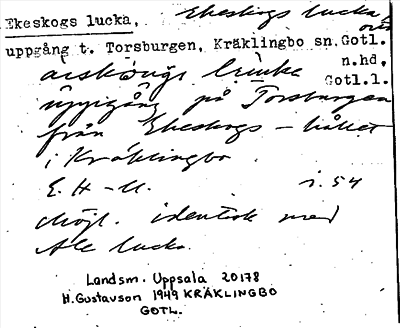 Ekeskogs lucka, Ekeskogs lucka,
uppgång t. Torsburgen, Kräklingbo sn. Gotl.
n.hd.
Gotl.l.
uppgång på Torsburgen
från Ekeskogs-hållet
i Kräklingbo
E. H-n. i. 54
Möjl. identisk med
Ale lucka.
Landsm. Uppsala 20178
H. Gustavson 1949 KRÄKLINGBO
GOTL.